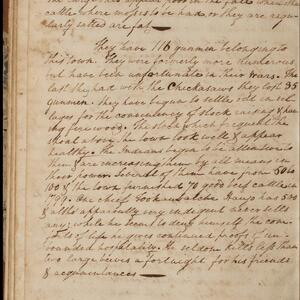 cattle where moss is to be had, or they are regu
larly salted are fat
They have 116 gunmen belonging to
this town. They were formerly more numerous
but have been unfortunate in their wars. The
last they had with the Chickasaws they lost 35
gunmen. They have begun to settle out in vil
lages for the conveniency of stock raising & hav
ing firewood. The stock which frequent the
about above the town look well & appear
healthy. the Indians begin to be attentive to
them & are increasing them by all means in
their power. Several of them have from 50 to
100 & the town furnished 70 good beef cattle in
1799. One chief Toolk has 500
& altho apparently very indigent never sells
any; while he seems to deny himself the com
forts of life he gives continued proofs of un
bounded hospitality. He seldom kills less than
two large beeves a fortnight for his friends
& acquaintances